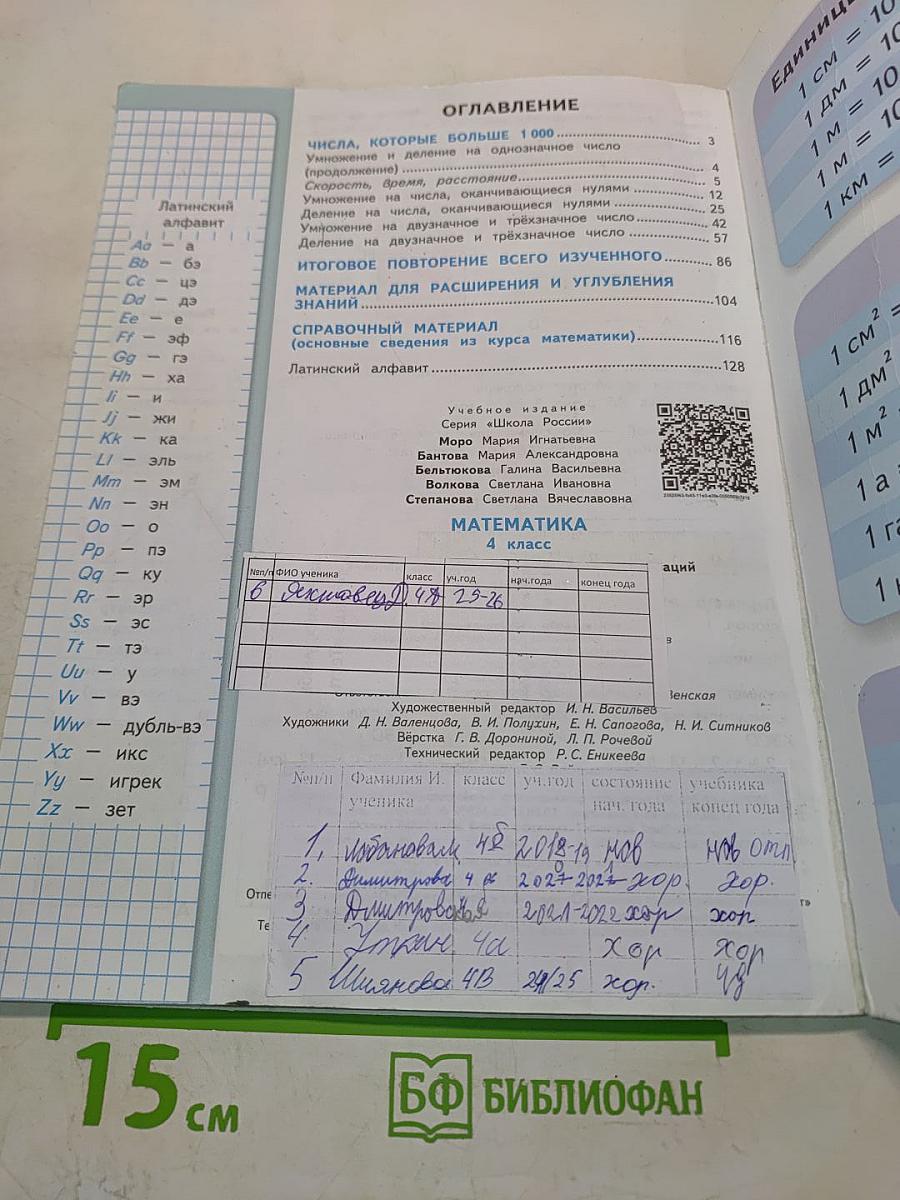 ОГЛАВЛЕНИЕ
ЧИСЛА, КОТОРЫЕ БОЛЬШЕ 1 000 ........ 3
Умножение и деление на однозначное число
(продолжение) ........ 4
Скорость, время, расстояние ........ 5
Умножение на числа, оканчивающиеся нулями ........ 12
Деление на числа, оканчивающиеся нулями ........ 25
Умножение на двузначное и трёхзначное число ........ 42
Деление на двузначное и трёхзначное число ........ 57
ИТОГОВОЕ ПОВТОРЕНИЕ ВСЕГО ИЗУЧЕННОГО ........ 86
МАТЕРИАЛ ДЛЯ РАСШИРЕНИЯ И УГЛУБЛЕНИЯ
ЗНАНИЙ ........ 104
СПРАВОЧНЫЙ МАТЕРИАЛ
(основные сведения из курса математики) ........ 116
Латинский алфавит ........ 128
Латинский
алфавит
Aa — а
Bb — бэ
Cc — цэ
Dd — дэ
Ee — е
Ff — эф
Gg — гэ
Hh — ха
Ii — и
Jj — жи
Kk — ка
Ll — эль
Mm — эм
Nn — эн
Oo — о
Pp — пэ
Qq — ку
Rr — эр
Ss — эс
Tt — тэ
Uu — у
Vv — вэ
Ww — дубль-вэ
Xx — икс
Yy — игрек
Zz — зет
Учебное издание
Серия «Школа России»
Моро Мария Игнатьевна
Бантова Мария Александровна
Бельтюкова Галина Васильевна
Волкова Светлана Ивановна
Степанова Светлана Вячеславовна
МАТЕМАТИКА
4 класс
аций
№п/п ФИО ученика класс уч.год нач.года конец года
6 4А 25-26
в
Венская
Художественный редактор И. Н. Васильев
Художники Д. Н. Валенцова, В. И. Полухин, Е. Н. Сапогова, Н. И. Ситников
Вёрстка Г. В. Дорониной, Л. П. Рочевой
Технический редактор Р. С. Еникеева
№п/п Фамилия И. класс уч.год состояние учебника
ученика нач. года конец года
1. 4б 2018-19 нов нов отл
2. Димитрова 4 а хор. хор.
3 Дмитрова 2021-2022 хор хор
4 Уткин 4а хор хор
5 Шиянова 4В 24/25 хор. уд
Отпе
Те
Единицы
1 см = 10
1 дм = 10
1 м = 10
1 м = 10
1 км =
1 см² =
1 дм²
1 м²
1 а
1 га
1
15 см
БФ БИБЛИОФАН